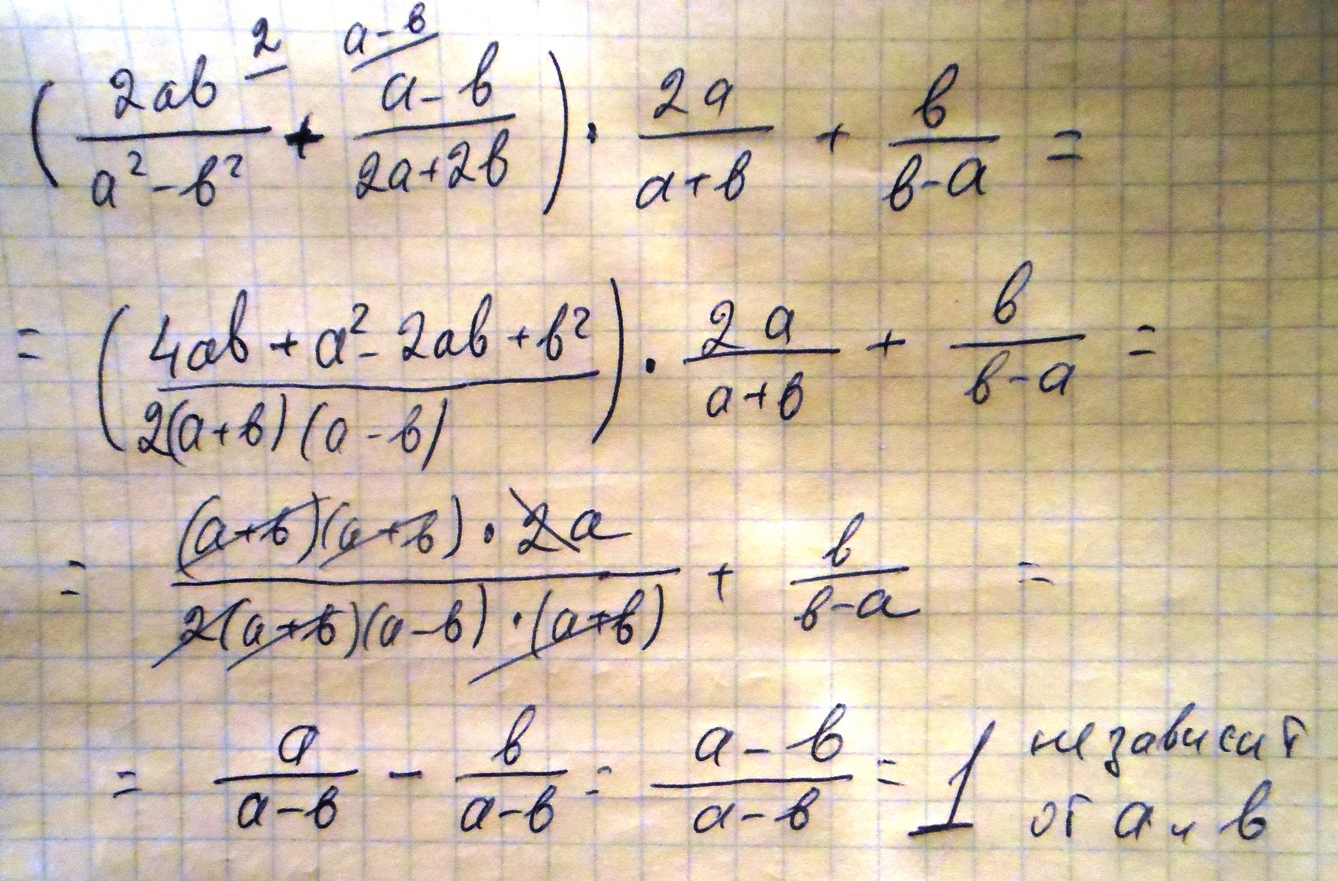 (2ab/(a²-b²) ² + (a-b)/(2a+2b) ᵃ⁻ᵇ) · 2a/(a+b) + b/(b-a) =
= ((4ab + a² - 2ab + b²)/(2(a+b)(a-b))) · 2a/(a+b) + b/(b-a) =
= ((a+b)(a+b) · 2a)/(2(a+b)(a-b) · (a+b)) + b/(b-a) =
= a/(a-b) - b/(a-b) = (a-b)/(a-b) = 1 независит
от a и b